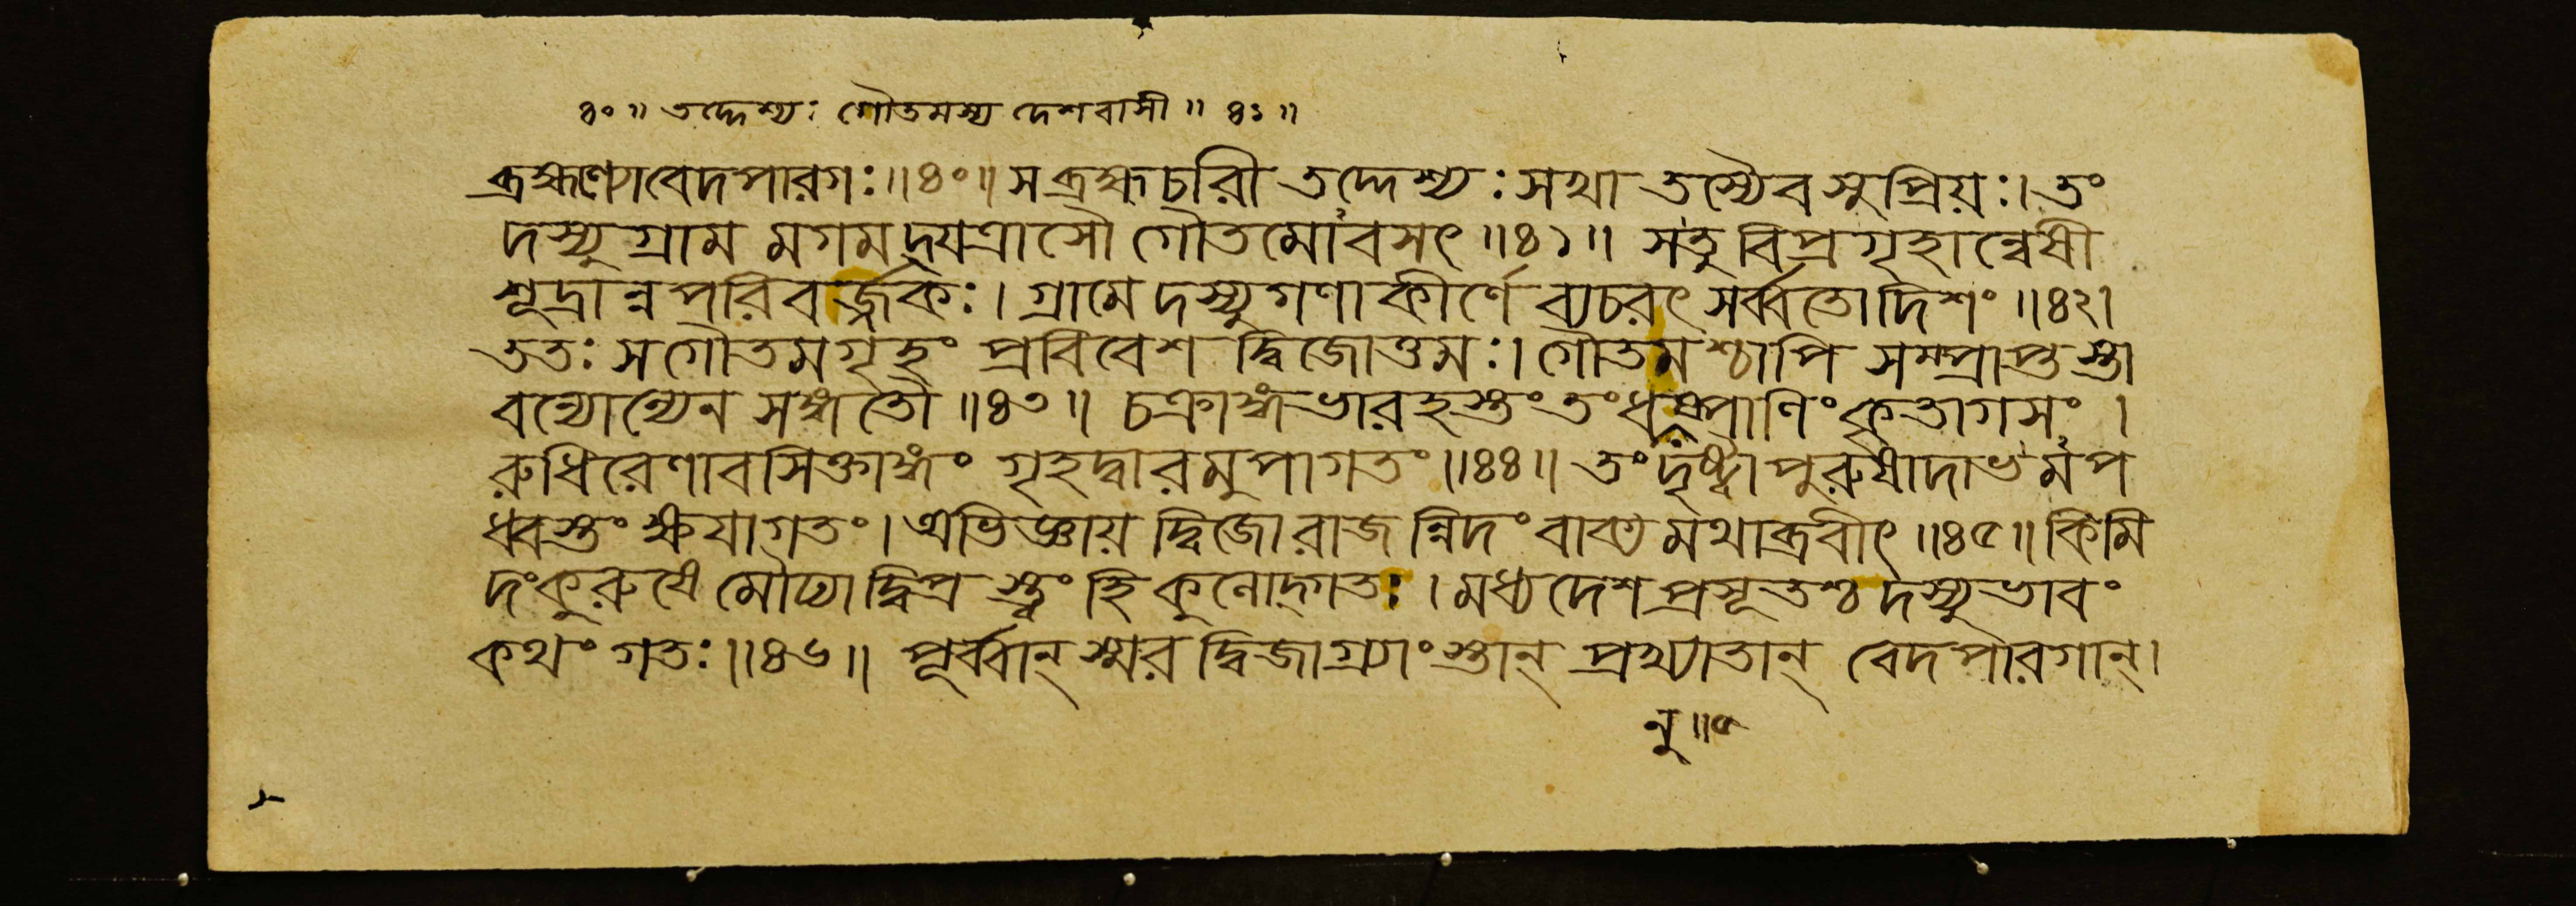 ৪০॥ তদ্দেশ্যঃ গৌতমস্য দেশবাসী॥ ৪১॥
ব্রহ্মণ্যোবেদপারগঃ॥৪০॥ সব্রহ্মচরী তদ্দেশ্যঃ সখা তস্যৈব সুপ্রিয়ঃ। তং
দস্যুগ্রাম মগমদ্যত্রাসৌ গৌতমোবসৎ॥৪১॥ সতু বিপ্রগৃহান্বেষী
শূদ্রান্নপরিবর্জ্জকঃ। গ্রামে দস্যুগণাকীর্ণে ব্যচরৎ সর্ব্বতোদিশং॥৪২।
ততঃ সগৌতমগৃহং প্রবিবেশ দ্বিজোত্তমঃ। গৌতমশ্চাপি সম্প্রাপ্তস্তা
বন্যোন্যেন সঙ্গতৌ॥৪৩॥ চক্রাঙ্গভারহস্তং তং ধনুষ্পাণিং কৃতাগসং।
রুধিরেণাবসিক্তাঙ্গং গৃহদ্বারমুপাগতং॥৪৪॥ তং দৃষ্ট্বা পুরুষাদাভমপ
ধ্বস্তং ক্ষয়াগতং। অভিজ্ঞায় দ্বিজোরাজন্নিদং বাক্য মথাব্রবীৎ॥৪৫॥ কিমি
দং কুরুষে মৌঢ্যাদ্বিপ্রস্ত্বং হি কুলোদ্গতঃ। মধ্যদেশপ্রসূতশ্চ দস্যুভাবং
কথং গতঃ॥৪৬॥ পূর্ব্বান্ স্মর দ্বিজাগ্র্যাংস্তান্ প্রখ্যাতান্ বেদপারগান্।
নু॥৫